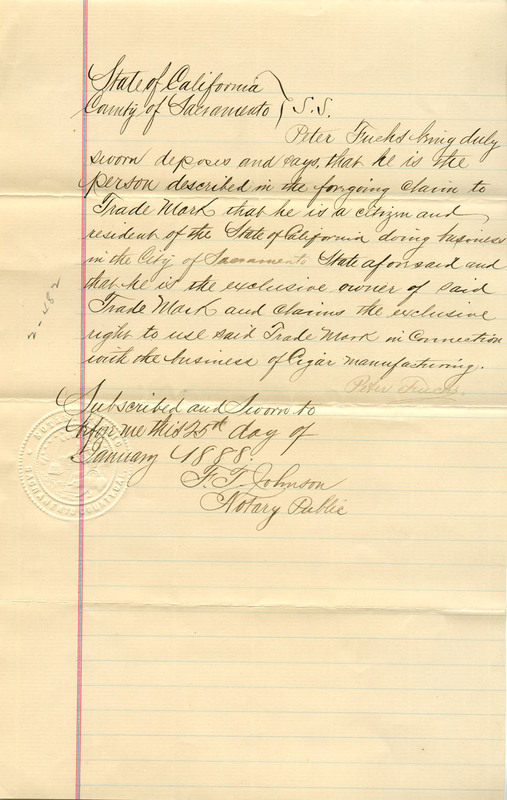 State of California
County of Sacramento } S.S.
Peter Fuchs being duly
sworn deposes and says, that he is the
person described in the forgoing Claim to
Trade Mark that he is a citizen and
resident of the State of California doing business
in the City of Sacramento State aforesaid and
that he is the exclusive owner of said
Trade Mark and claims the exclusive
right to use said Trade Mark in Connection
with the business of Cigar manufacturing.
Peter Fuchs.
Subscribed and Sworn to
before me this 25th day of
January 1888.
F. T. Johnson
Notary Public